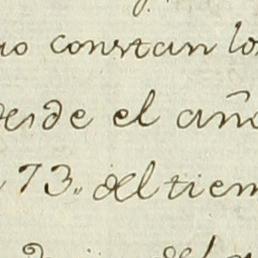 no constan lo
desde el año
73., del tiem